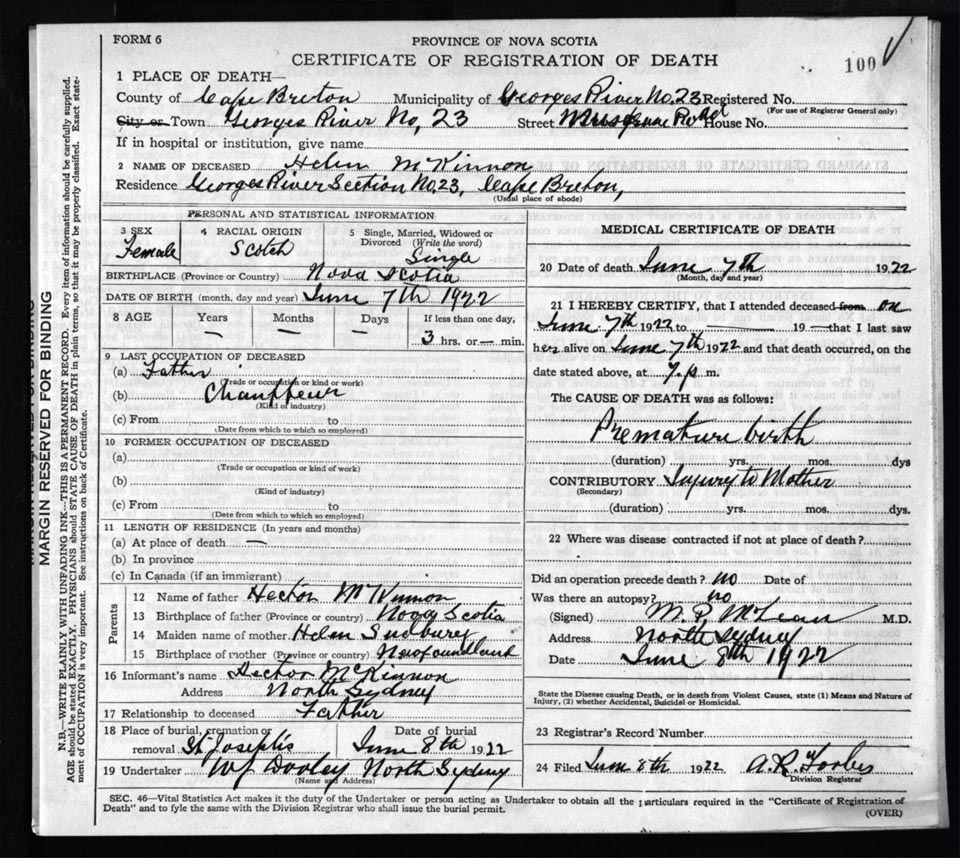 FORM 6
PROVINCE OF NOVA SCOTIA
CERTIFICATE OF REGISTRATION OF DEATH
100
1 PLACE OF DEATH—
County of Cape Breton Municipality of Georges River No. 23 Registered No.
(For use of Registrar General only)
City or Town Georges River No, 23 Street Road House No.
If in hospital or institution, give name
2 NAME OF DECEASED Helen McKinnon
Residence Georges River Section No. 23, Cape Breton,
(Usual place of abode)
PERSONAL AND STATISTICAL INFORMATION
3 SEX Female
4 RACIAL ORIGIN Scotch
5 Single, Married, Widowed or Divorced (Write the word) Single
BIRTHPLACE (Province or Country) Nova Scotia
DATE OF BIRTH (month, day and year) June 7th 1922
8 AGE Years — Months — Days — If less than one day, 3 hrs. or — min.
9 LAST OCCUPATION OF DECEASED
(a) Father
(Trade or occupation or kind or work)
(b) Chauffeur
(Kind of industry)
(c) From to
(Date from which to which so employed)
10 FORMER OCCUPATION OF DECEASED
(a)
(Trade or occupation or kind of work)
(b)
(Kind of industry)
(c) From to
(Date from which to which so employed)
11 LENGTH OF RESIDENCE (In years and months)
(a) At place of death —
(b) In province
(c) In Canada (if an immigrant)
Parents
12 Name of father Hector McKinnon
13 Birthplace of father (Province or country) Nova Scotia
14 Maiden name of mother Helen Sudbury
15 Birthplace of mother (Province or country) Newfoundland
16 Informant's name Hector McKinnon
Address North Sydney
17 Relationship to deceased Father
18 Place of burial, cremation or removal St Joseph's
Date of burial June 8th 1922
19 Undertaker W J Dooley North Sydney
(Name and Address)
MEDICAL CERTIFICATE OF DEATH
20 Date of death June 7th 1922
(Month, day and year)
21 I HEREBY CERTIFY, that I attended deceased from on
June 7th 1922 to — 19 — that I last saw
her alive on June 7th 1922 and that death occurred, on the
date stated above, at 7.p m.
The CAUSE OF DEATH was as follows:
Premature birth
(duration) yrs. mos. dys
CONTRIBUTORY Injury to Mother
(Secondary)
(duration) yrs. mos. dys.
22 Where was disease contracted if not at place of death?
Did an operation precede death? no Date of
Was there an autopsy? no
(Signed) M. P. McLean M.D.
Address North Sydney
Date June 8th 1922
State the Disease causing Death, or in death from Violent Causes, state (1) Means and Nature of
Injury, (2) whether Accidental, Suicidal or Homicidal.
23 Registrar's Record Number
24 Filed June 8th 1922 A. R. Forbes
Division Registrar
SEC. 46—Vital Statistics Act makes it the duty of the Undertaker or person acting as Undertaker to obtain all the particulars required in the "Certificate of Registration of
Death" and to fyle the same with the Division Registrar who shall issue the burial permit.
(OVER)
MARGIN RESERVED FOR BINDING
N.B.—WRITE PLAINLY WITH UNFADING INK—THIS IS A PERMANENT RECORD. Every item of information should be carefully supplied.
AGE should be stated EXACTLY. PHYSICIANS should STATE CAUSE OF DEATH in plain terms, so that it may be properly classified. Exact state-
ment of OCCUPATION is very important. See instructions on back of Certificate.